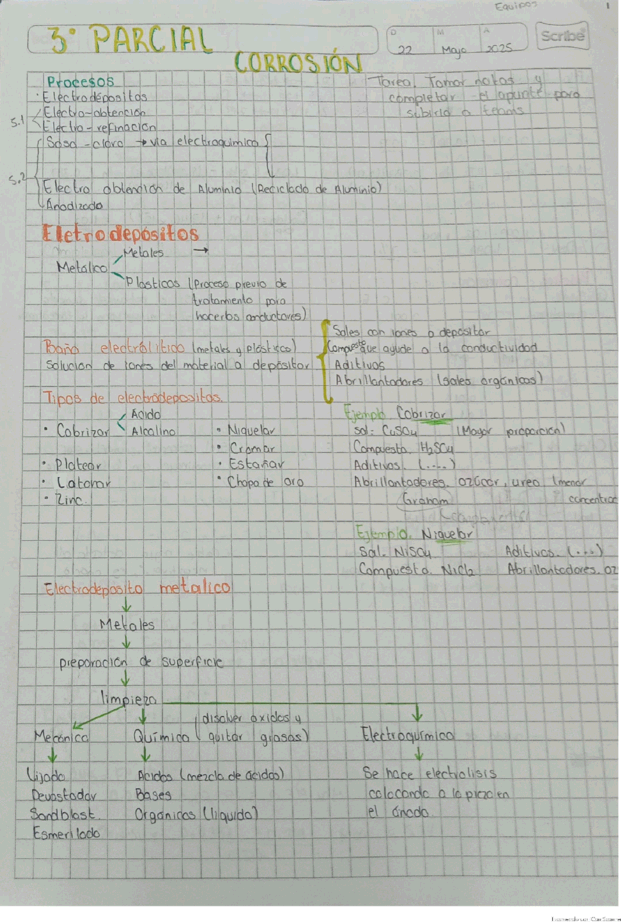 Equipos 1
3° PARCIAL
D 22 M Mayo A 2025
Scribe
CORROSIÓN
Procesos
· Electrodepositos
S.1 Electro-obtención
Electro-refinación
Sosa-cloro → via electroquimica
S.2
Electro obtención de Aluminio (Reciclado de Aluminio)
Anodizado
Tarea. Tomar notas y
completar el apunte para
subirla a teams
Eletrodepositos
Metalico
Metales →
Plasticos (Proceso previo de
tratamiento para
hacerlos conductores)
Baño electrólitico (metales y plástico)
Solución de iones del material a depositar
Sales con iones a depositar
Compuesto que ayude a la conductividad
Aditivos
Abrillantadores (sales orgánicos)
Tipos de electrodepositos
· Cobrizar
Acido
Alcalino
· Platear
· Latonar
· Zinc
· Niquelar
· Cromar
· Estañar
· Chapa de oro
Ejemplo Cobrizar
Sal: CuSO4 (Mayor proporción)
Compuesta H2SO4
Aditivos. (....)
Abrillantadores. azúcar, urea (menor
concentrac
Ejemplo. Niquelar
Sal. NiSO4 Aditivos. (...)
Compuesta. NiCl2 Abrillantadores. az
Electrodeposito metalico
Metales
preparación de superficie
limpieza
Mecánica
Lijado
Devastador
Sandblast
Esmerilado
Químico (disolver oxidos y
quitar grasas)
Acidos (mezcla de acidos)
Bases
Orgánicos (líquido)
Electroquímico
Se hace electrólisis
colocando a la pieza en
el ánodo.